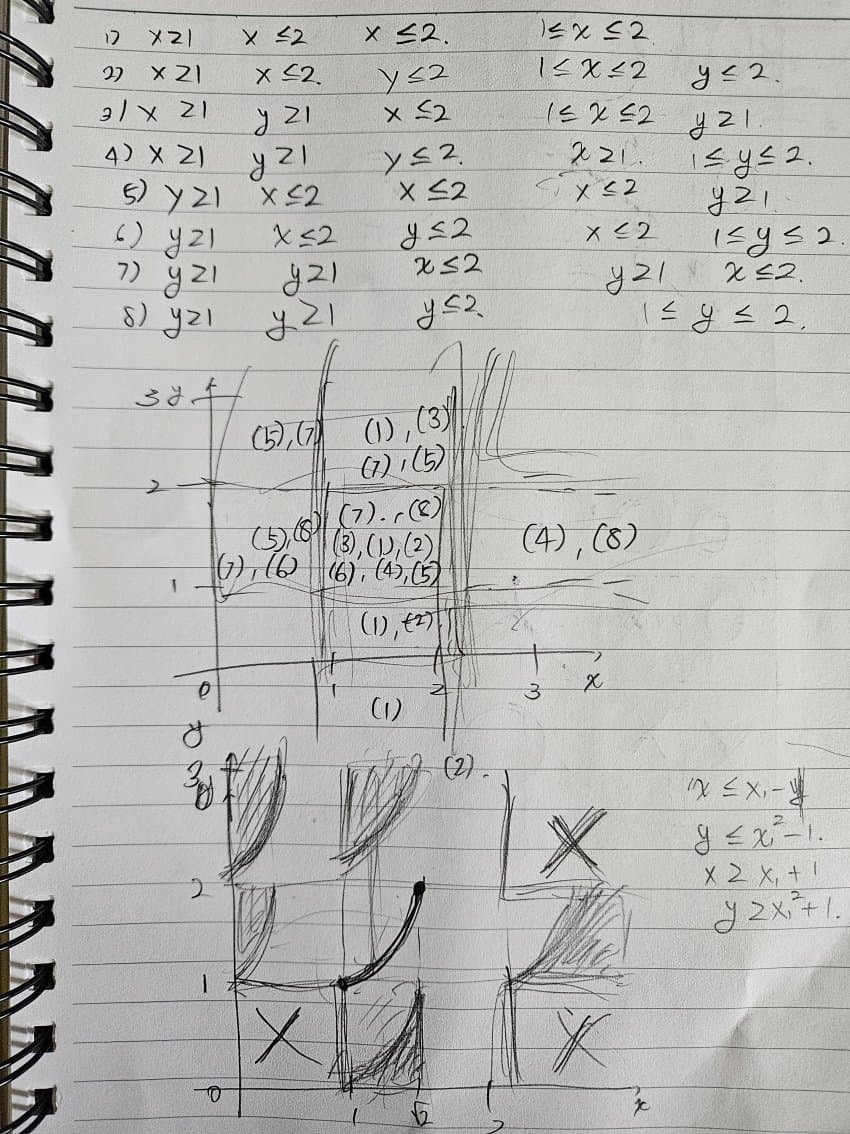 1) x≥1 x ≤2 x ≤2. 1≤ x ≤2
2) x ≥1 x ≤2. y ≤2 1≤ x ≤2 y ≤ 2.
3) x ≥1 y ≥1 x ≤2 1≤ x ≤2 y ≥1.
4) x ≥1 y ≥1 y ≤ 2. x ≥1. 1≤ y ≤ 2.
5) y ≥1 x ≤2 x ≤2 x ≤2 y ≥1.
6) y ≥1 x ≤2 y ≤2 x ≤2 1≤ y ≤ 2.
7) y ≥1 y ≥1 x ≤2 y ≥1 x ≤2.
8) y ≥1 y ≥1 y ≤2. 1 ≤ y ≤ 2.
3 y
(5),(7) (1),(3)
(7),(5)
2
(5),(8) (7).,(8)
(3),(1),(2) (4),(8)
(7),(6) (6),(4),(5)
1
(1),(2)
0 1 2 3 x
(1)
y
3 (2).
y ≤ x₁²-1.
2 x ≥ x₁+1
y ≥ x₁²+1.
1
0 1 √2 2 x